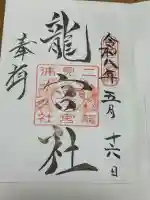 令和八年五月十六日
龍宮社
奉拝